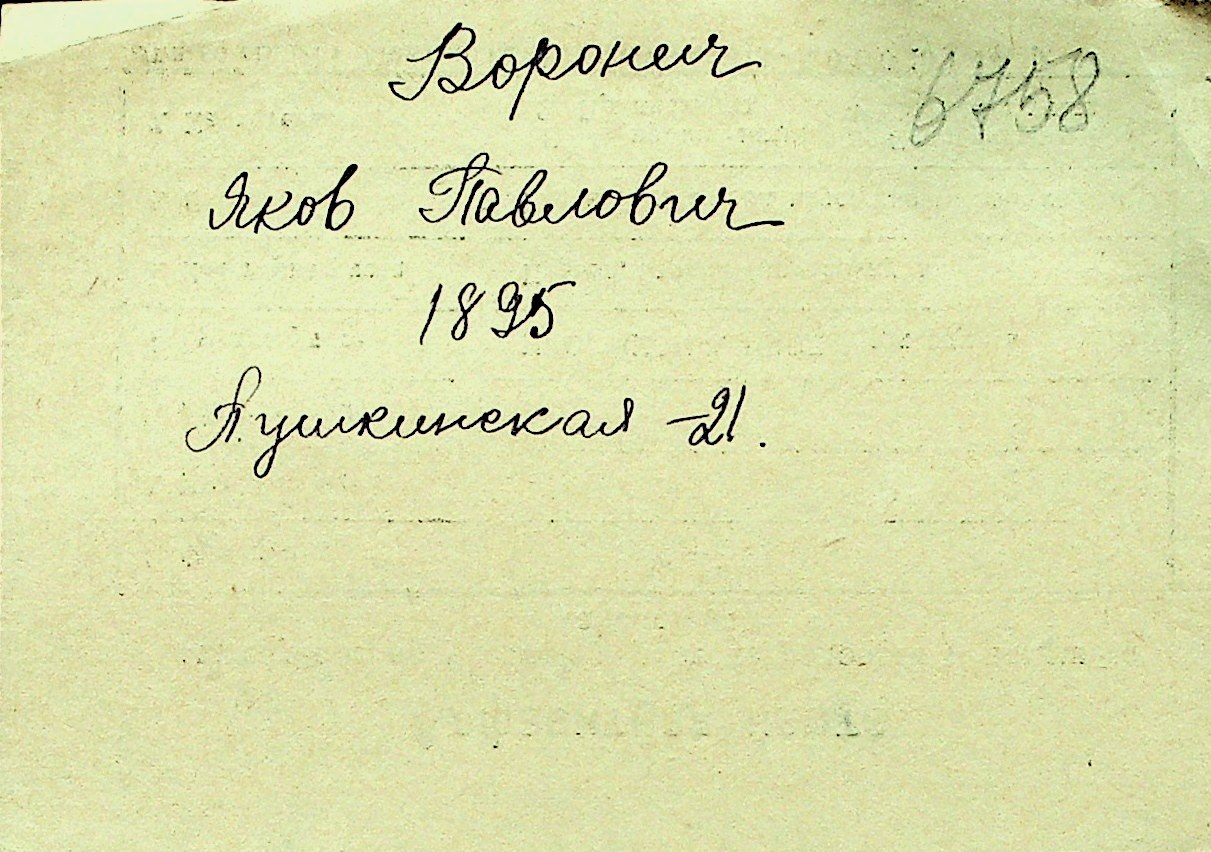 Воронич
6758
Яков Павлович
1895
Пушкинская -21.